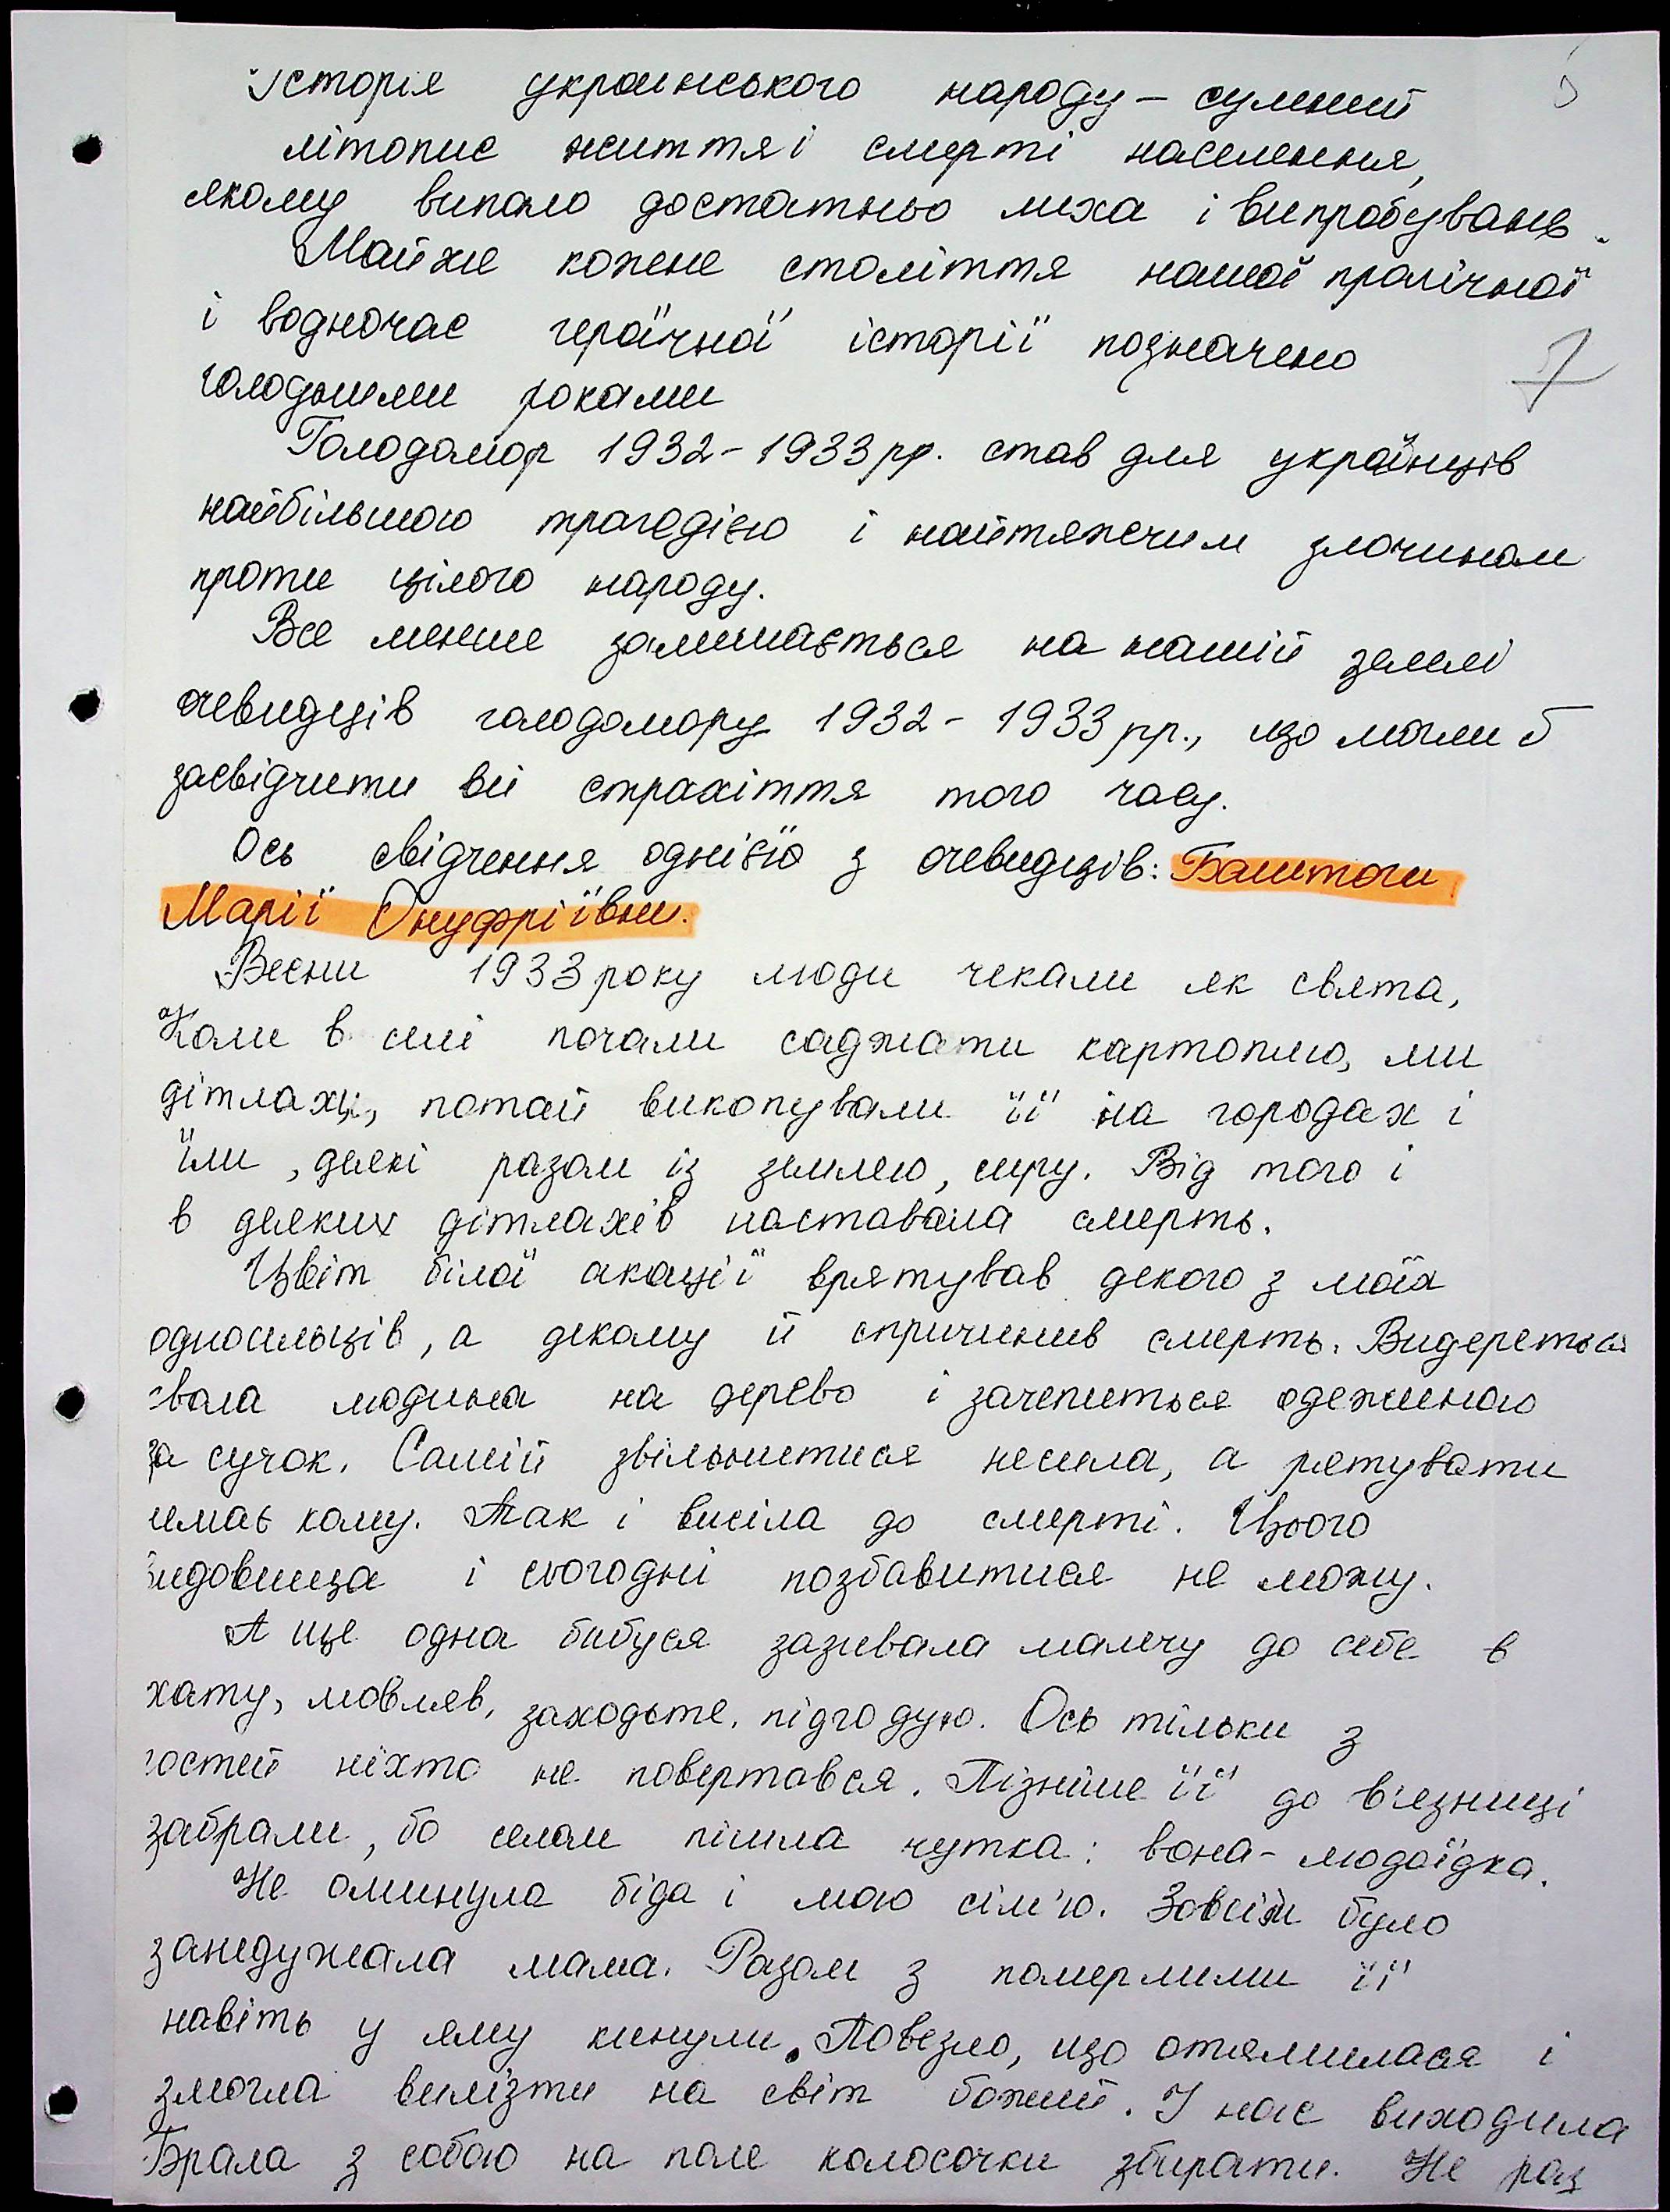 Історія українського народу – сумний
літопис життя і смерті населення,
якому випало достатньо лиха і випробувань.
Майже кожне століття нашої трагічної
і водночас героїчної історії позначено
голодними роками
7
Голодомор 1932-1933 рр. став для українців
найбільшою трагедією і найтяжчим злочином
проти цілого народу.
Все менше залишається на нашій землі
очевидців голодомору 1932-1933 рр., що могли б
засвідчити всі страхіття того часу.
Ось свідчення однієї з очевидців: Баштоги
Марії Онуфріївни.
Весни 1933 року люди чекали як свята,
Коли в селі почали саджати картоплю, ми
дітлахи, потай викопували її на городах і
їли, деякі разом із землею, сиру. Від того і
в деяких дітлахів наставала смерть.
Цвіт білої акації врятував декого з моїх
односельців, а декому й спричинив смерть. Видереться
людина на дерево і зачепиться одежиною
за сучок. Самій звільнитися несила, а рятувати
немає кому. Так і висіла до смерті. Цього
видовища і сьогодні позбавитися не можу.
А ще одна бабуся зазивала малечу до себе в
хату, мовляв, заходьте, підгодую. Ось тільки з
гостей ніхто не повертався. Пізніше її до в'язниці
забрали, бо селом пішла чутка: вона - людоїдка.
Не оминула біда і мою сім'ю. Зовсім було
занедужала мама. Разом з померлими її
навіть у яму кинули. Повезло, що отямилася і
змогла вилізти на світ божий. І нас виходила
Брала з собою на поле колосочки збирати. Не раз